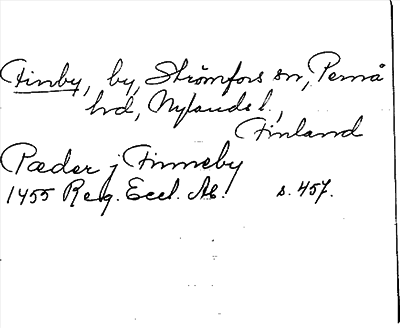 Finby, by, Strömfors sn, Pernå
hd, Nylands l.,
Finland
Pæder j Finneby
1455 Reg. Eccl. Ab. s. 457.